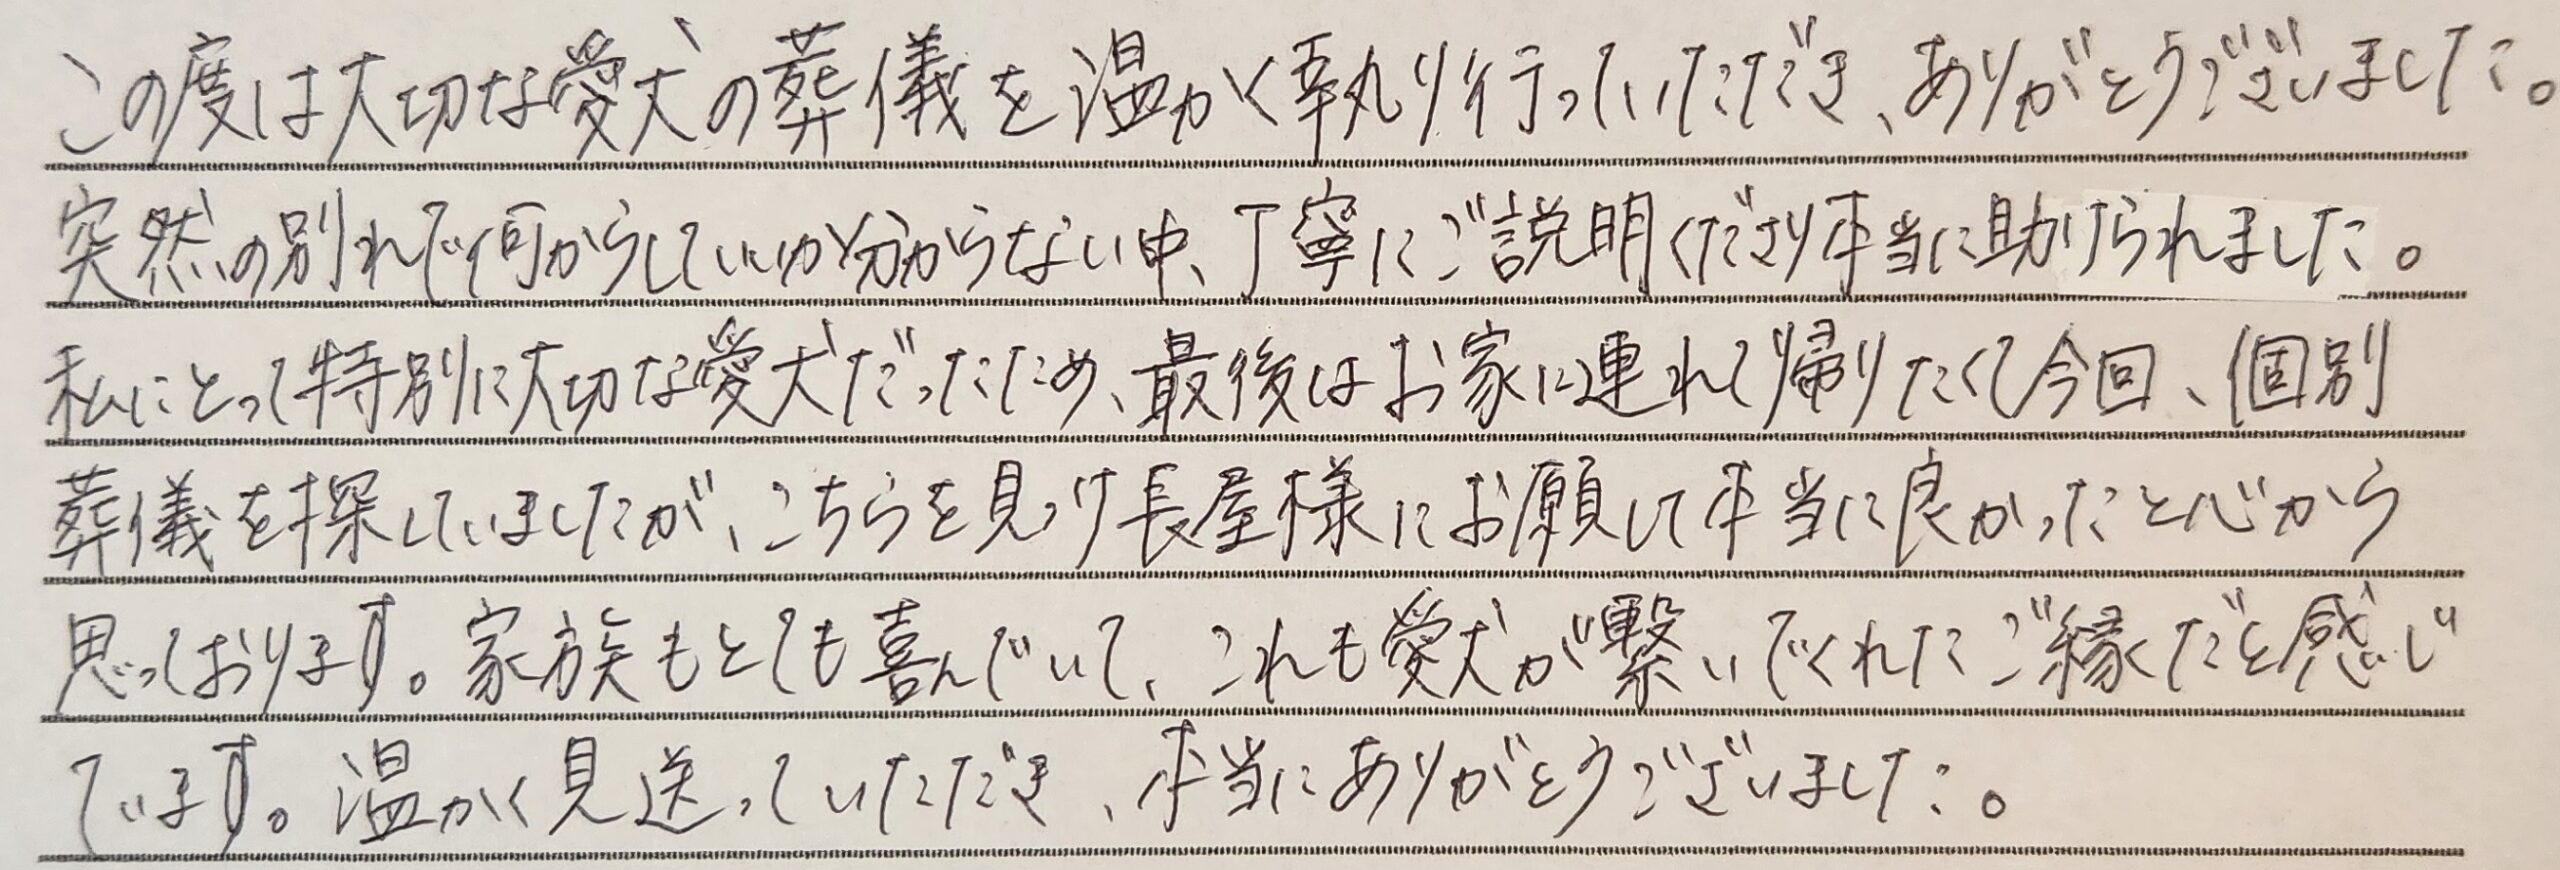 この度は大切な愛犬の葬儀を温かく執り行っていただき、ありがとうございました。
突然の別れで何からしていいか分からない中、丁寧にご説明くださり本当に助けられました。
私にとって特別に大切な愛犬だったため、最後はお家に連れて帰りたくて今回、個別
葬儀を探していましたが、こちらを見つけ長屋様にお願いして本当に良かったと心から
思っております。家族もとても喜んでいて、これも愛犬が繋いでくれたご縁だと感じ
ています。温かく見送っていただき、本当にありがとうございました。